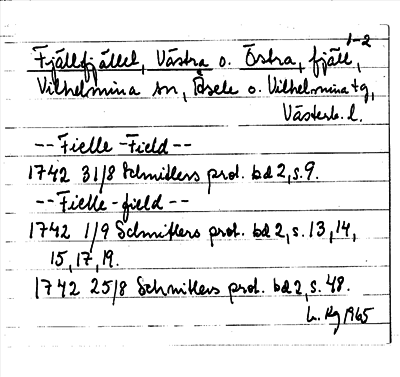 1-2
Fjällfjället, Västra o. Östra, fjäll,
Vilhelmina sn, Åsele o. Vilhelmina tg,
Västerb. l.
-- Fielle -Field --
1742 31/8 Schnitlers prot. bd 2, s. 9.
-- Fielle - field --
1742 1/9 Schnitlers prot. bd 2, s. 13, 14,
15, 17, 19.
1742 25/8 Schnitlers prot. bd 2, s. 48.
L. Rg 1965